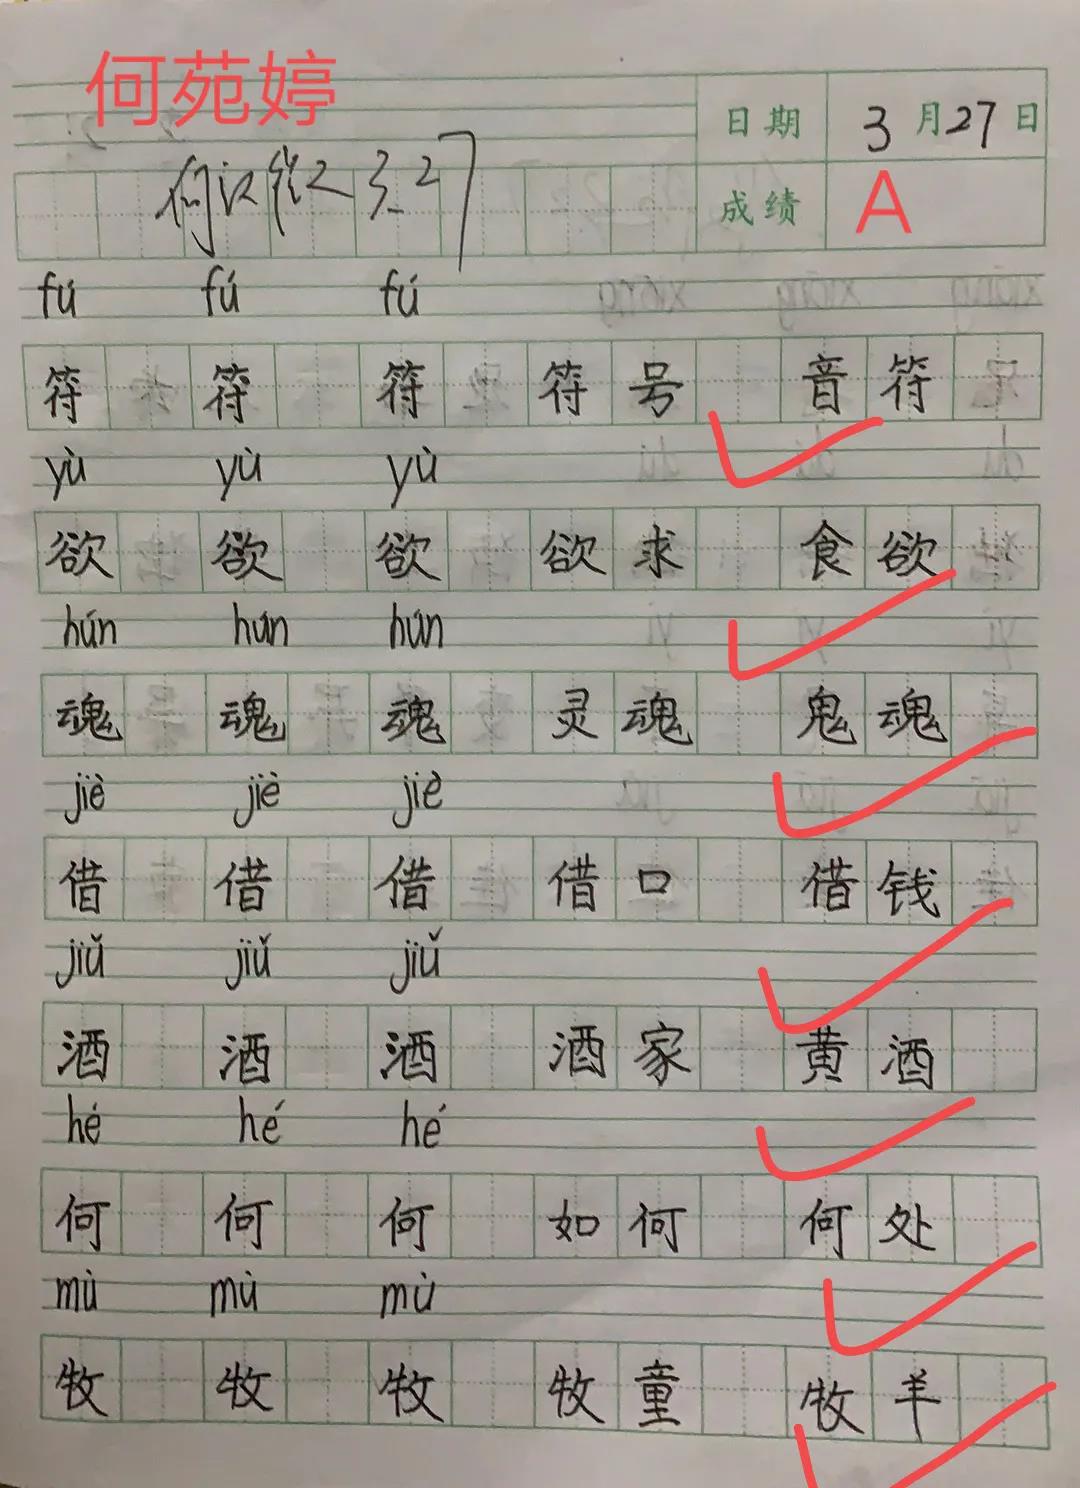 何苑婷
日期 3月27日
3.27
成绩 A
fú fú fú
符 符 符 符号 音符
yù yù yù
欲 欲 欲 欲求 食欲
hún hún hún
魂 魂 魂 灵魂 鬼魂
jiè jiè jiè
借 借 借 借口 借钱
jiǔ jiǔ jiǔ
酒 酒 酒 酒家 黄酒
hé hé hé
何 何 何 如何 何处
mù mù mù
牧 牧 牧 牧童 牧羊